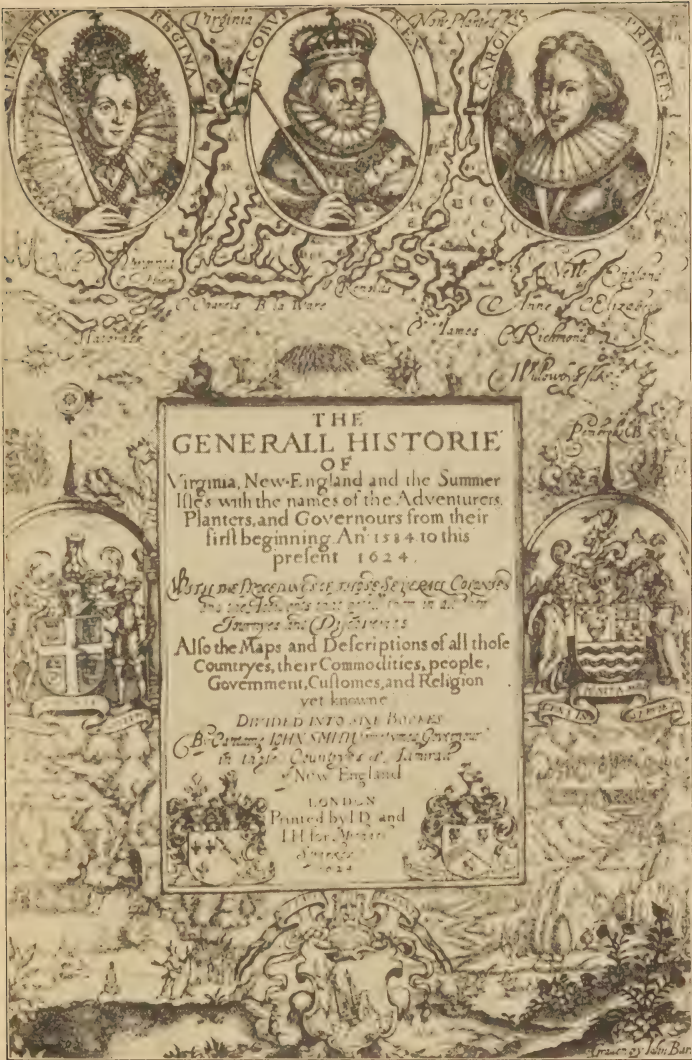 ELIZABETHA REGINA
Virginia
IACOBUS REX
Now Planted
CAROLUS PRINCEPS
New England
C Anne C Elizabeth
C James
C Richmond
THE
GENERALL HISTORIE
OF
Virginia, New-England and the Summer
Isles with the names of the Adventurers,
Planters, and Governours from their
first beginning. An° 1584. to this
present 1624.
WITH THE PROCEEDINGS OF THOSE SEVERALL COLONIES
Journyes and Discoveries
Also the Maps and Descriptions of all those
Countryes, their Commodities, people,
Government, Customes, and Religion
yet knowne
DIVIDED INTO SIXE BOOKES
By Captaine IOHN SMITH sometymes Governour
in those Countryes & Admirall
of New England
LONDON
Printed by I D and
I H for Michael
Sparkes
1624
Graven by Iohn Bar